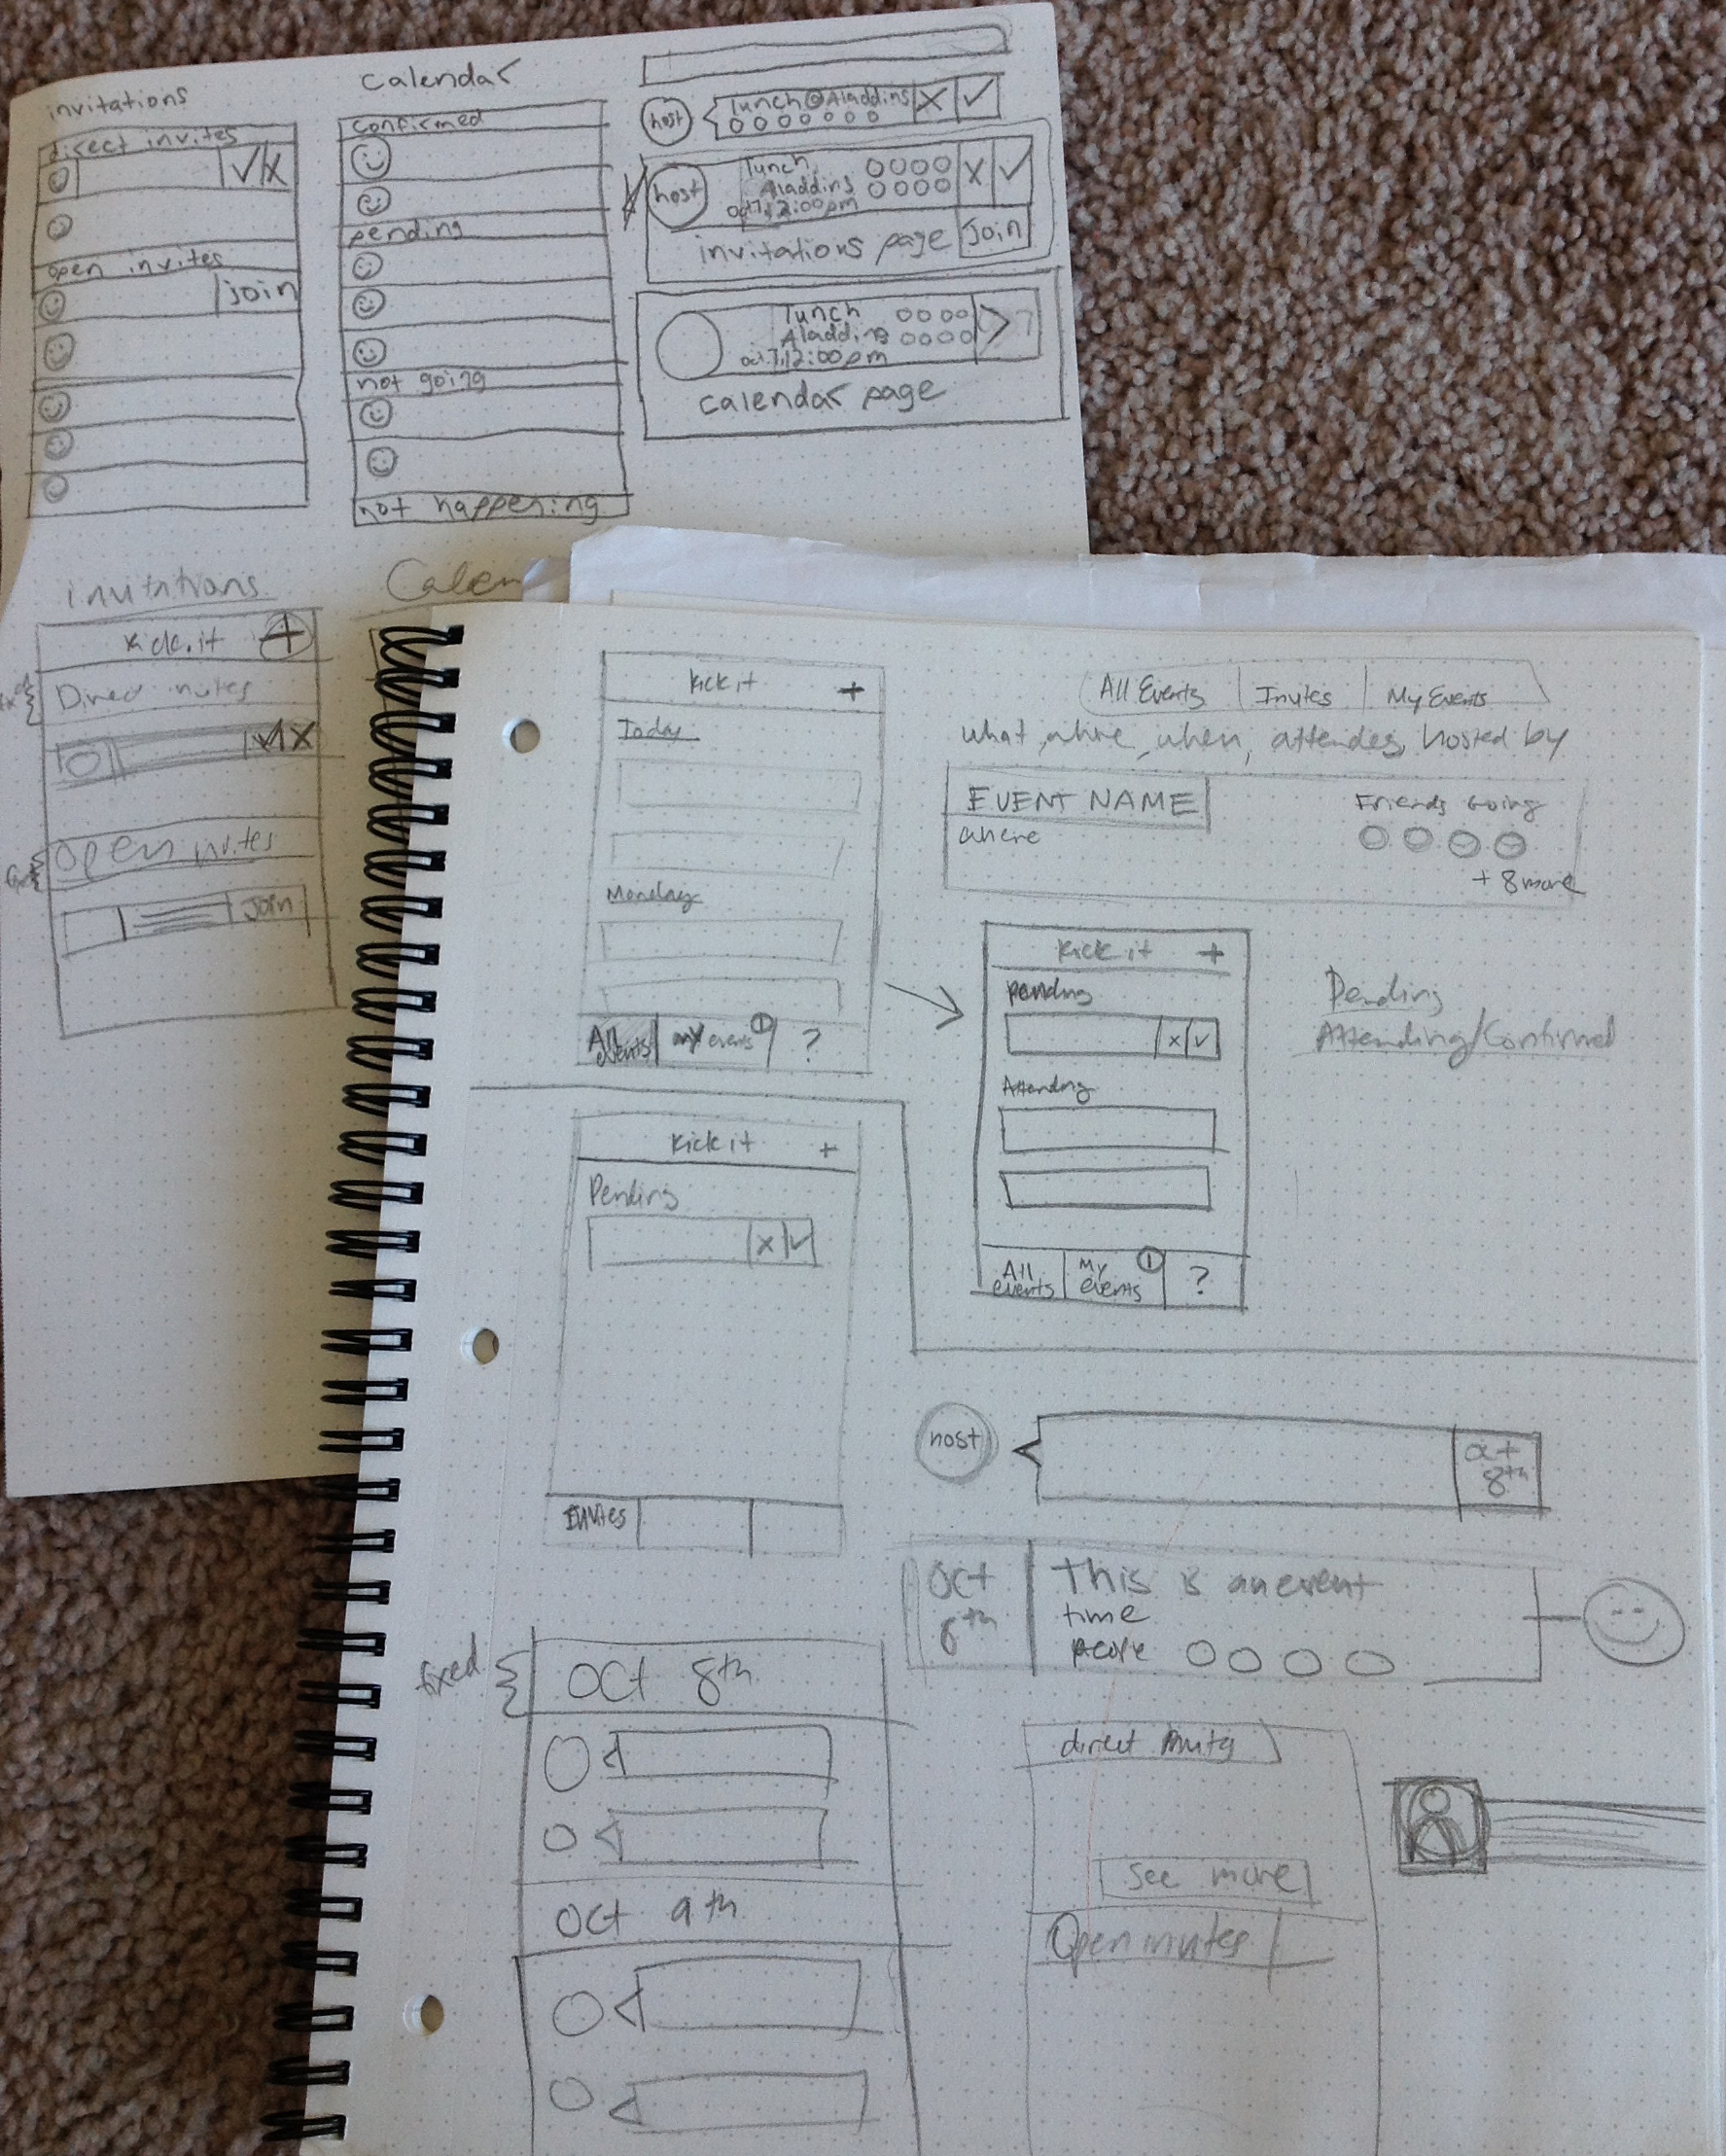 invitations
direct invites
open invites
join
Calendar
confirmed
pending
not going
not happening
host
lunch@Aladdins
host
lunch
Aladdins
oct 7, 12:00pm
invitations page
join
lunch
Aladdins
oct. 7, 12:00pm
calendar page
invitations
Kick.it +
Direct invites
open invites
Join
Calen
Kick it +
Today
Monday
All events
my events 1
?
All Events | Invites | My Events
what, where, when, attendees, hosted by
EVENT NAME
where
Friends Going
+ 8 more
Kick it +
Pending
Attending
All events
My events 1
?
Pending
Attending/Confirmed
Kick it +
Pending
Invites
host
oct 8th
Oct 8th
This is an event
time
people
fixed
Oct 8th
Oct 9th
direct
see more
Open invites